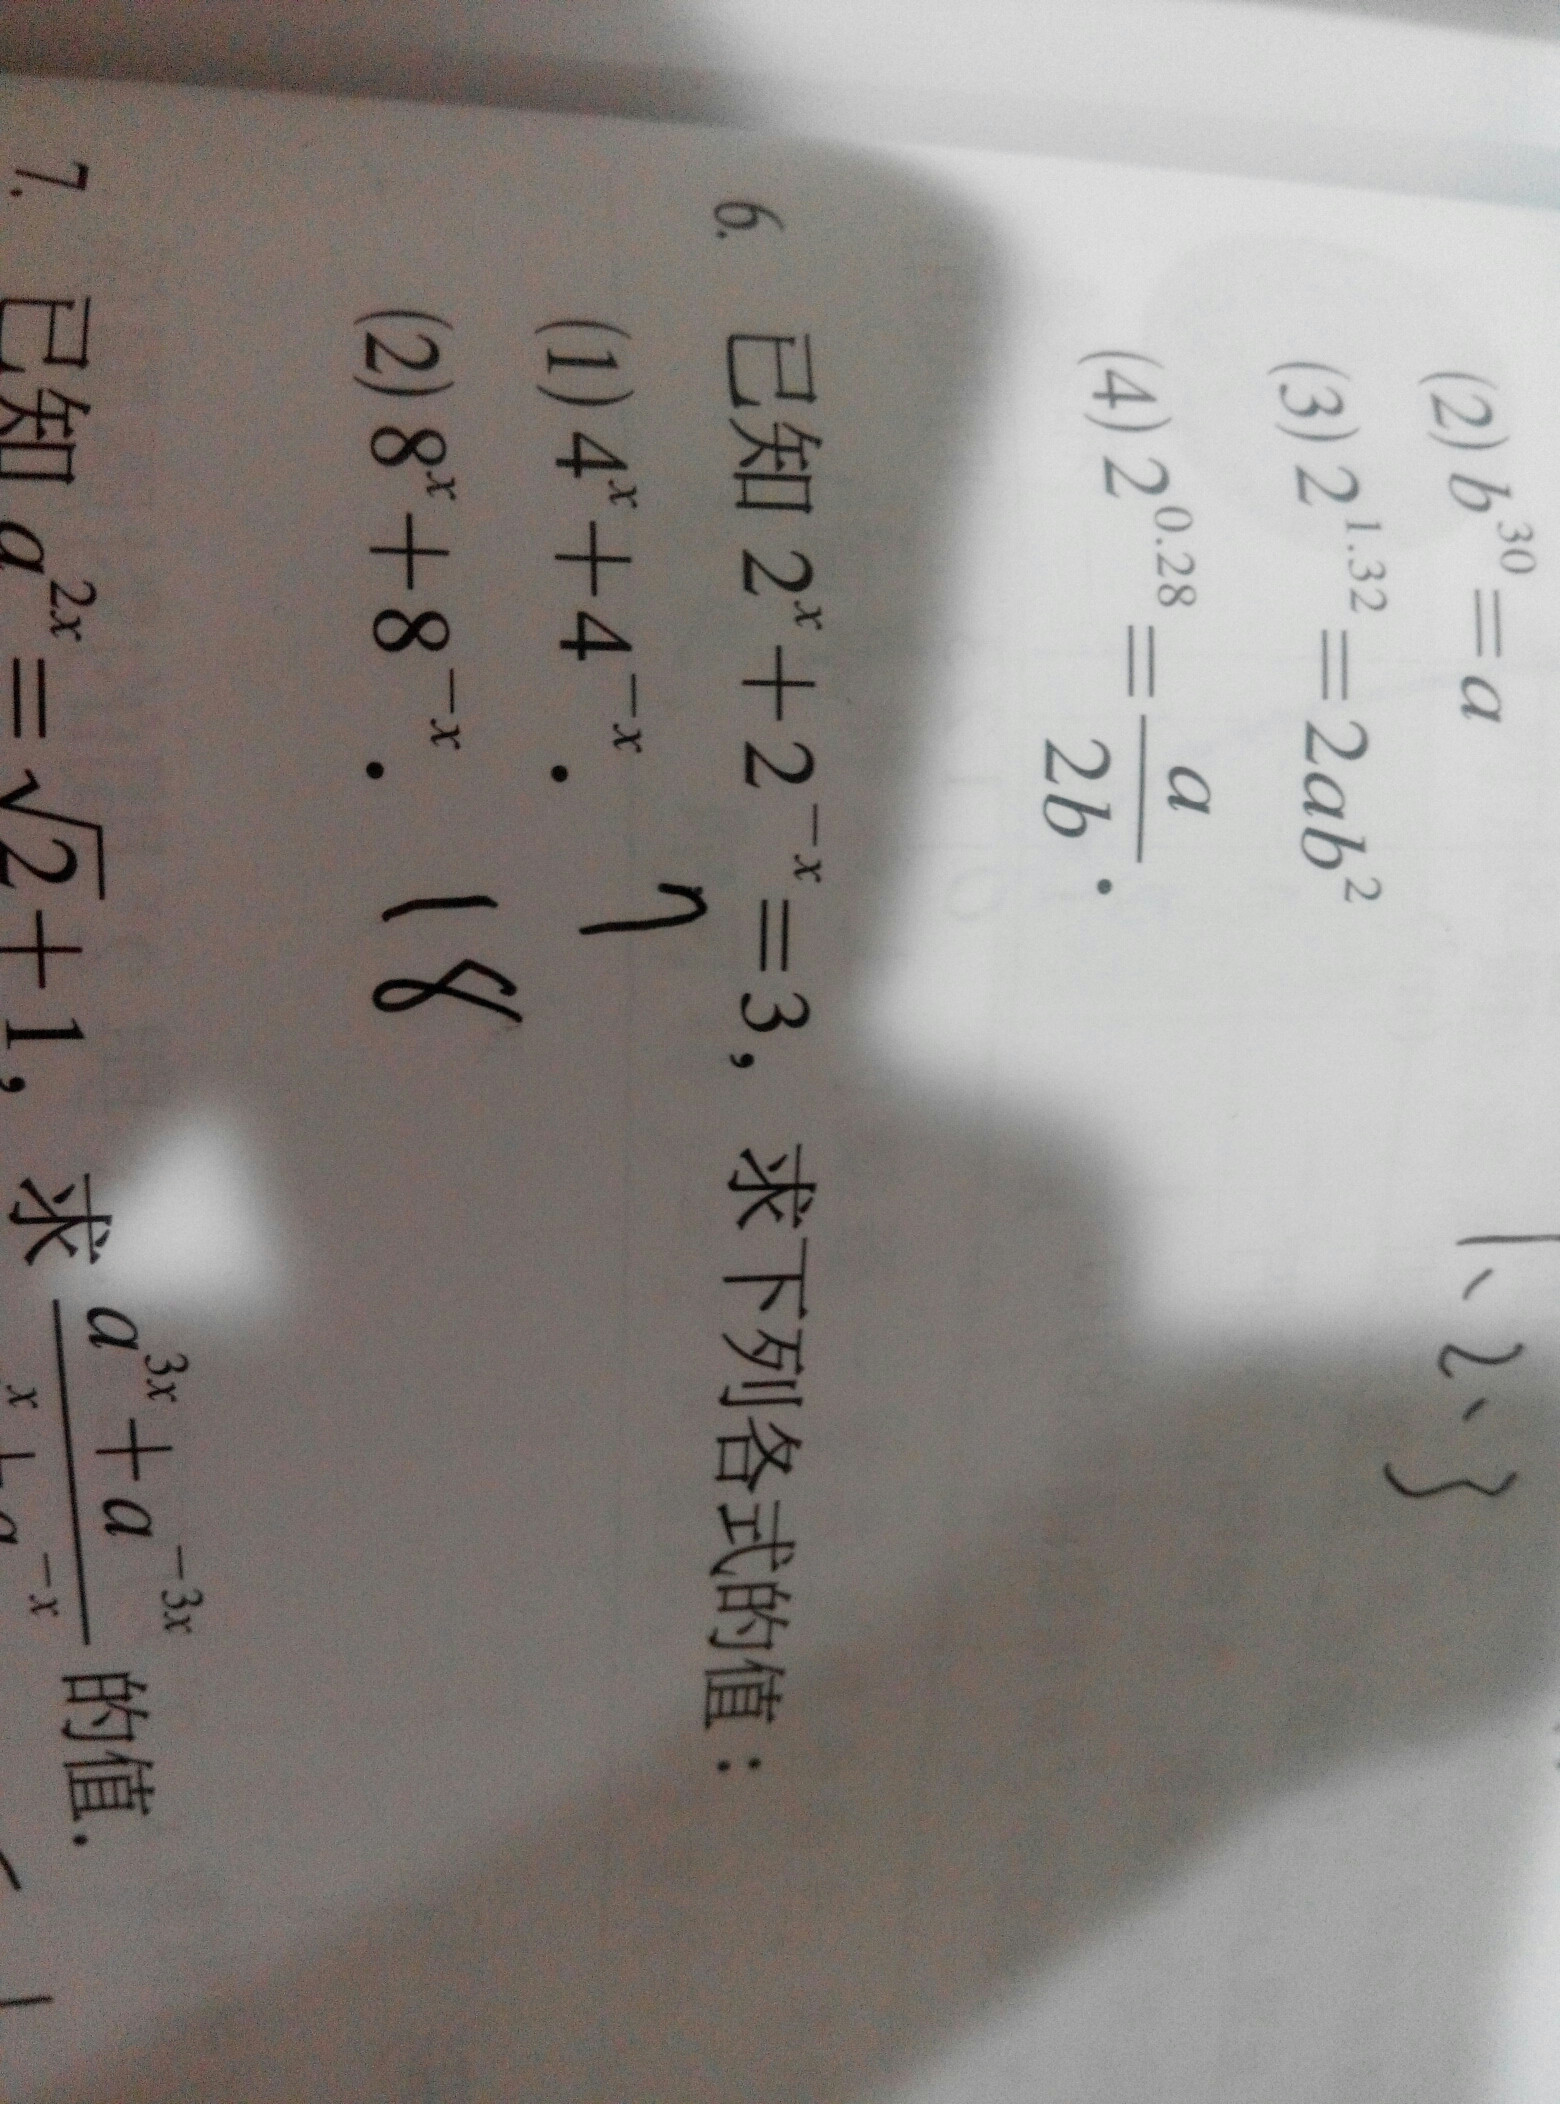 (2) b^30 = a
1、2、3
(3) 2^1.32 = 2ab^2
(4) 2^0.28 = a/2b .
6. 已知 2^x + 2^-x = 3, 求下列各式的值：
(1) 4^x + 4^-x . 7
(2) 8^x + 8^-x . 18
7. 已知 a^2x = √2 + 1, 求 (a^3x + a^-3x)/(a^x + a^-x) 的值.